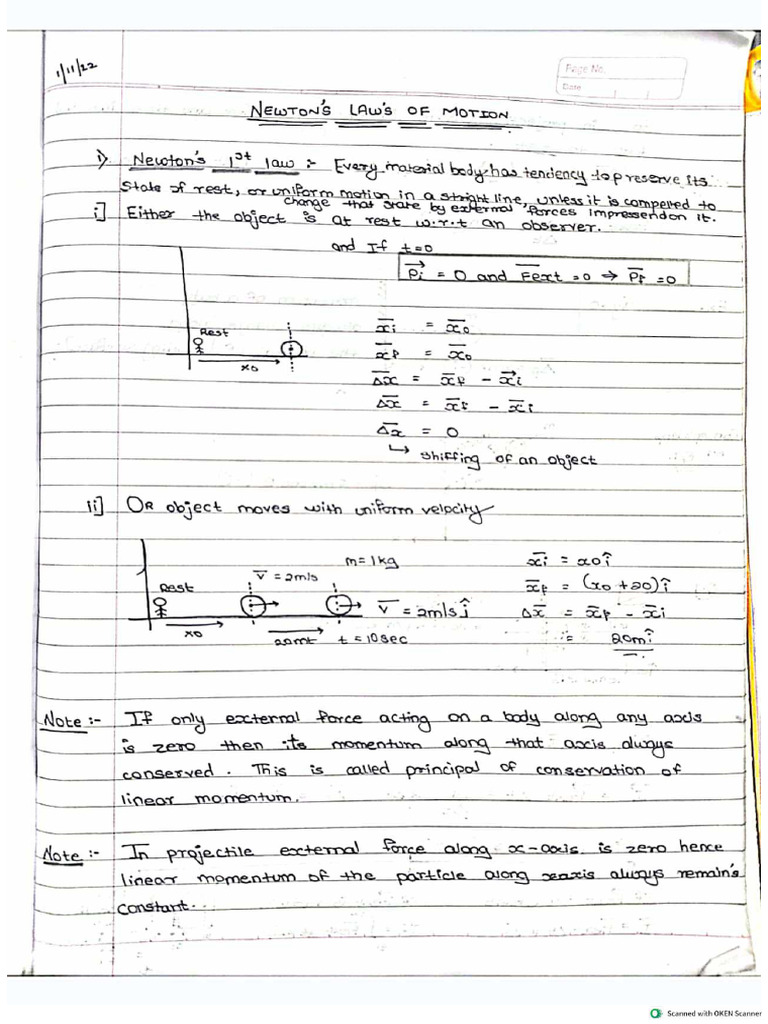 1/11/22
Page No.
Date
NEWTON'S LAW'S OF MOTION
i) Newton's 1st law :- Every material body has tendency to preserve its
state of rest, or uniform motion in a stright line, unless it is compelled to
change that state by external forces impressendon it.
i] Either the object is at rest w.r.t an observer.
and If t=0
P̅i = 0 and F̅ext = 0 ⇒ P̅f = 0
Rest
x0
x̅i = x̅0
x̅f = x̅0
Δ̅x = x̅f - x̅i
Δ̅x = x̅f - x̅i
Δ̅x = 0
↳ shiffing of an object
ii] OR object moves with uniform velocity
Rest
v̅ = 2m/s
m = 1kg
v̅ = 2m/s ĵ
x0
20mt
t = 10sec
x̅i = x0 î
x̅f = (x0 + 20) î
Δx̅ = x̅f - x̅i
= 20m î
Note :- If only external force acting on a body along any axis
is zero then its momentum along that axis always
conserved. This is called principal of conservation of
linear momentum.
Note :- In projectile external force along x-axis is zero hence
linear momentum of the particle along xaxis always remain's
constant.
Scanned with OKEN Scanner